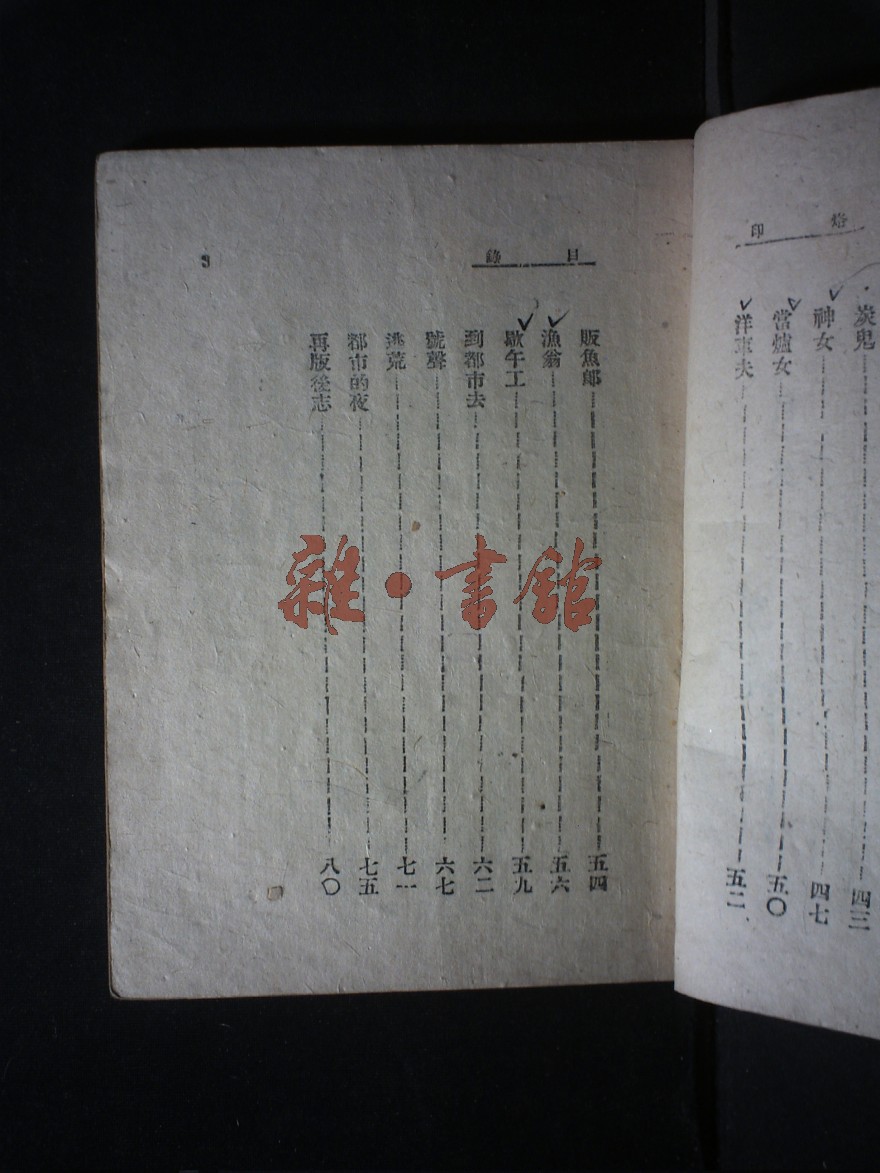 烙印
炭鬼 四三
神女 四七
當爐女 五〇
洋車夫 五二
目錄
3
販魚郎 五四
漁翁 五六
歇午工 五九
到都市去 六二
號聲 六七
逃荒 七一
都市的夜 七五
再版後志 八〇
雜·書館